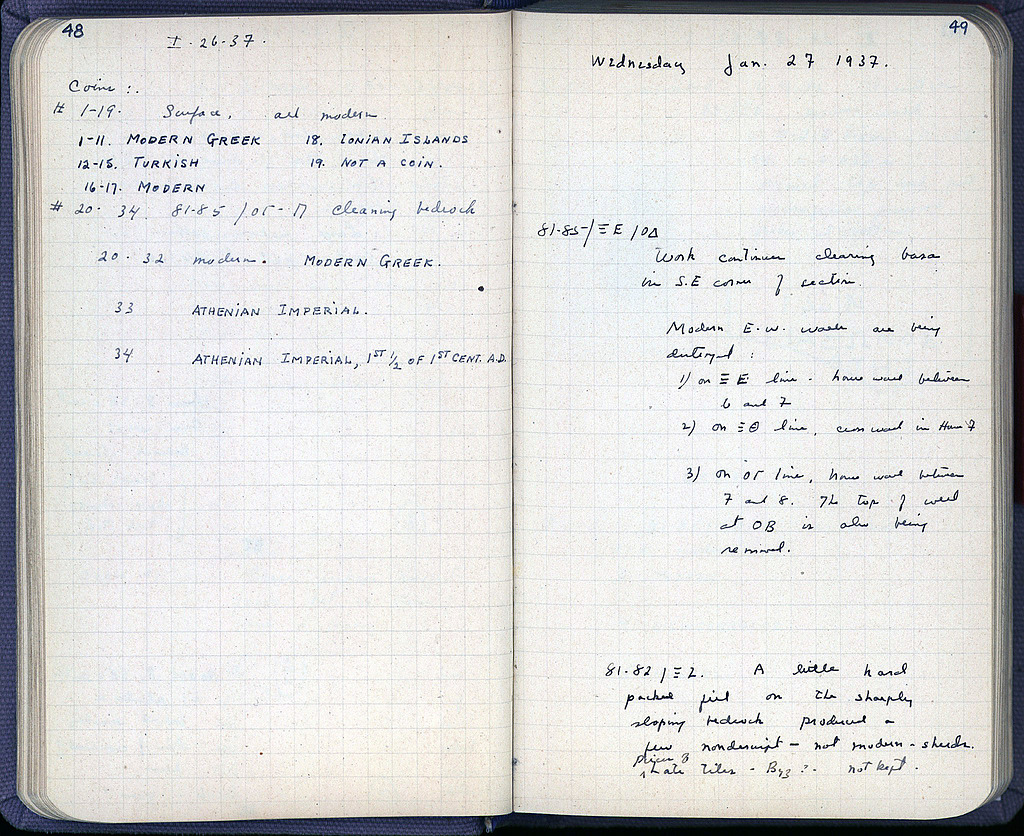 48
I. 26-37.
Coins :.
# 1-19. Surface, all modern.
1-11. MODERN GREEK 18. IONIAN ISLANDS
12-15. TURKISH 19. NOT A COIN.
16-17. MODERN
# 20-34. 81-85 / ΟΓ-Π cleaning bedrock
20-32 modern. MODERN GREEK.
33 ATHENIAN IMPERIAL.
34 ATHENIAN IMPERIAL, 1ST 1/2 OF 1ST CENT. A.D.
49
Wednesday Jan. 27 1937.
81-85 / ΞΕ / ΟΔ
Work continues clearing
in S.E corner of section.
Modern E-W. walls are being
destroyed :
1) on ΞΕ line - house wall between
6 and 7
2) on ΞΘ line, cross wall in House 7
3) on ΟΓ line, house wall between
7 and 8. The top of wall
at ΟΒ is also being
removed.
81-82 / ΞΖ. A little hard
packed fill on the sharply
sloping bedrock produced a
few nondescript - not modern - sherds.
Pieces of
late tiles - Byz ? - not kept.